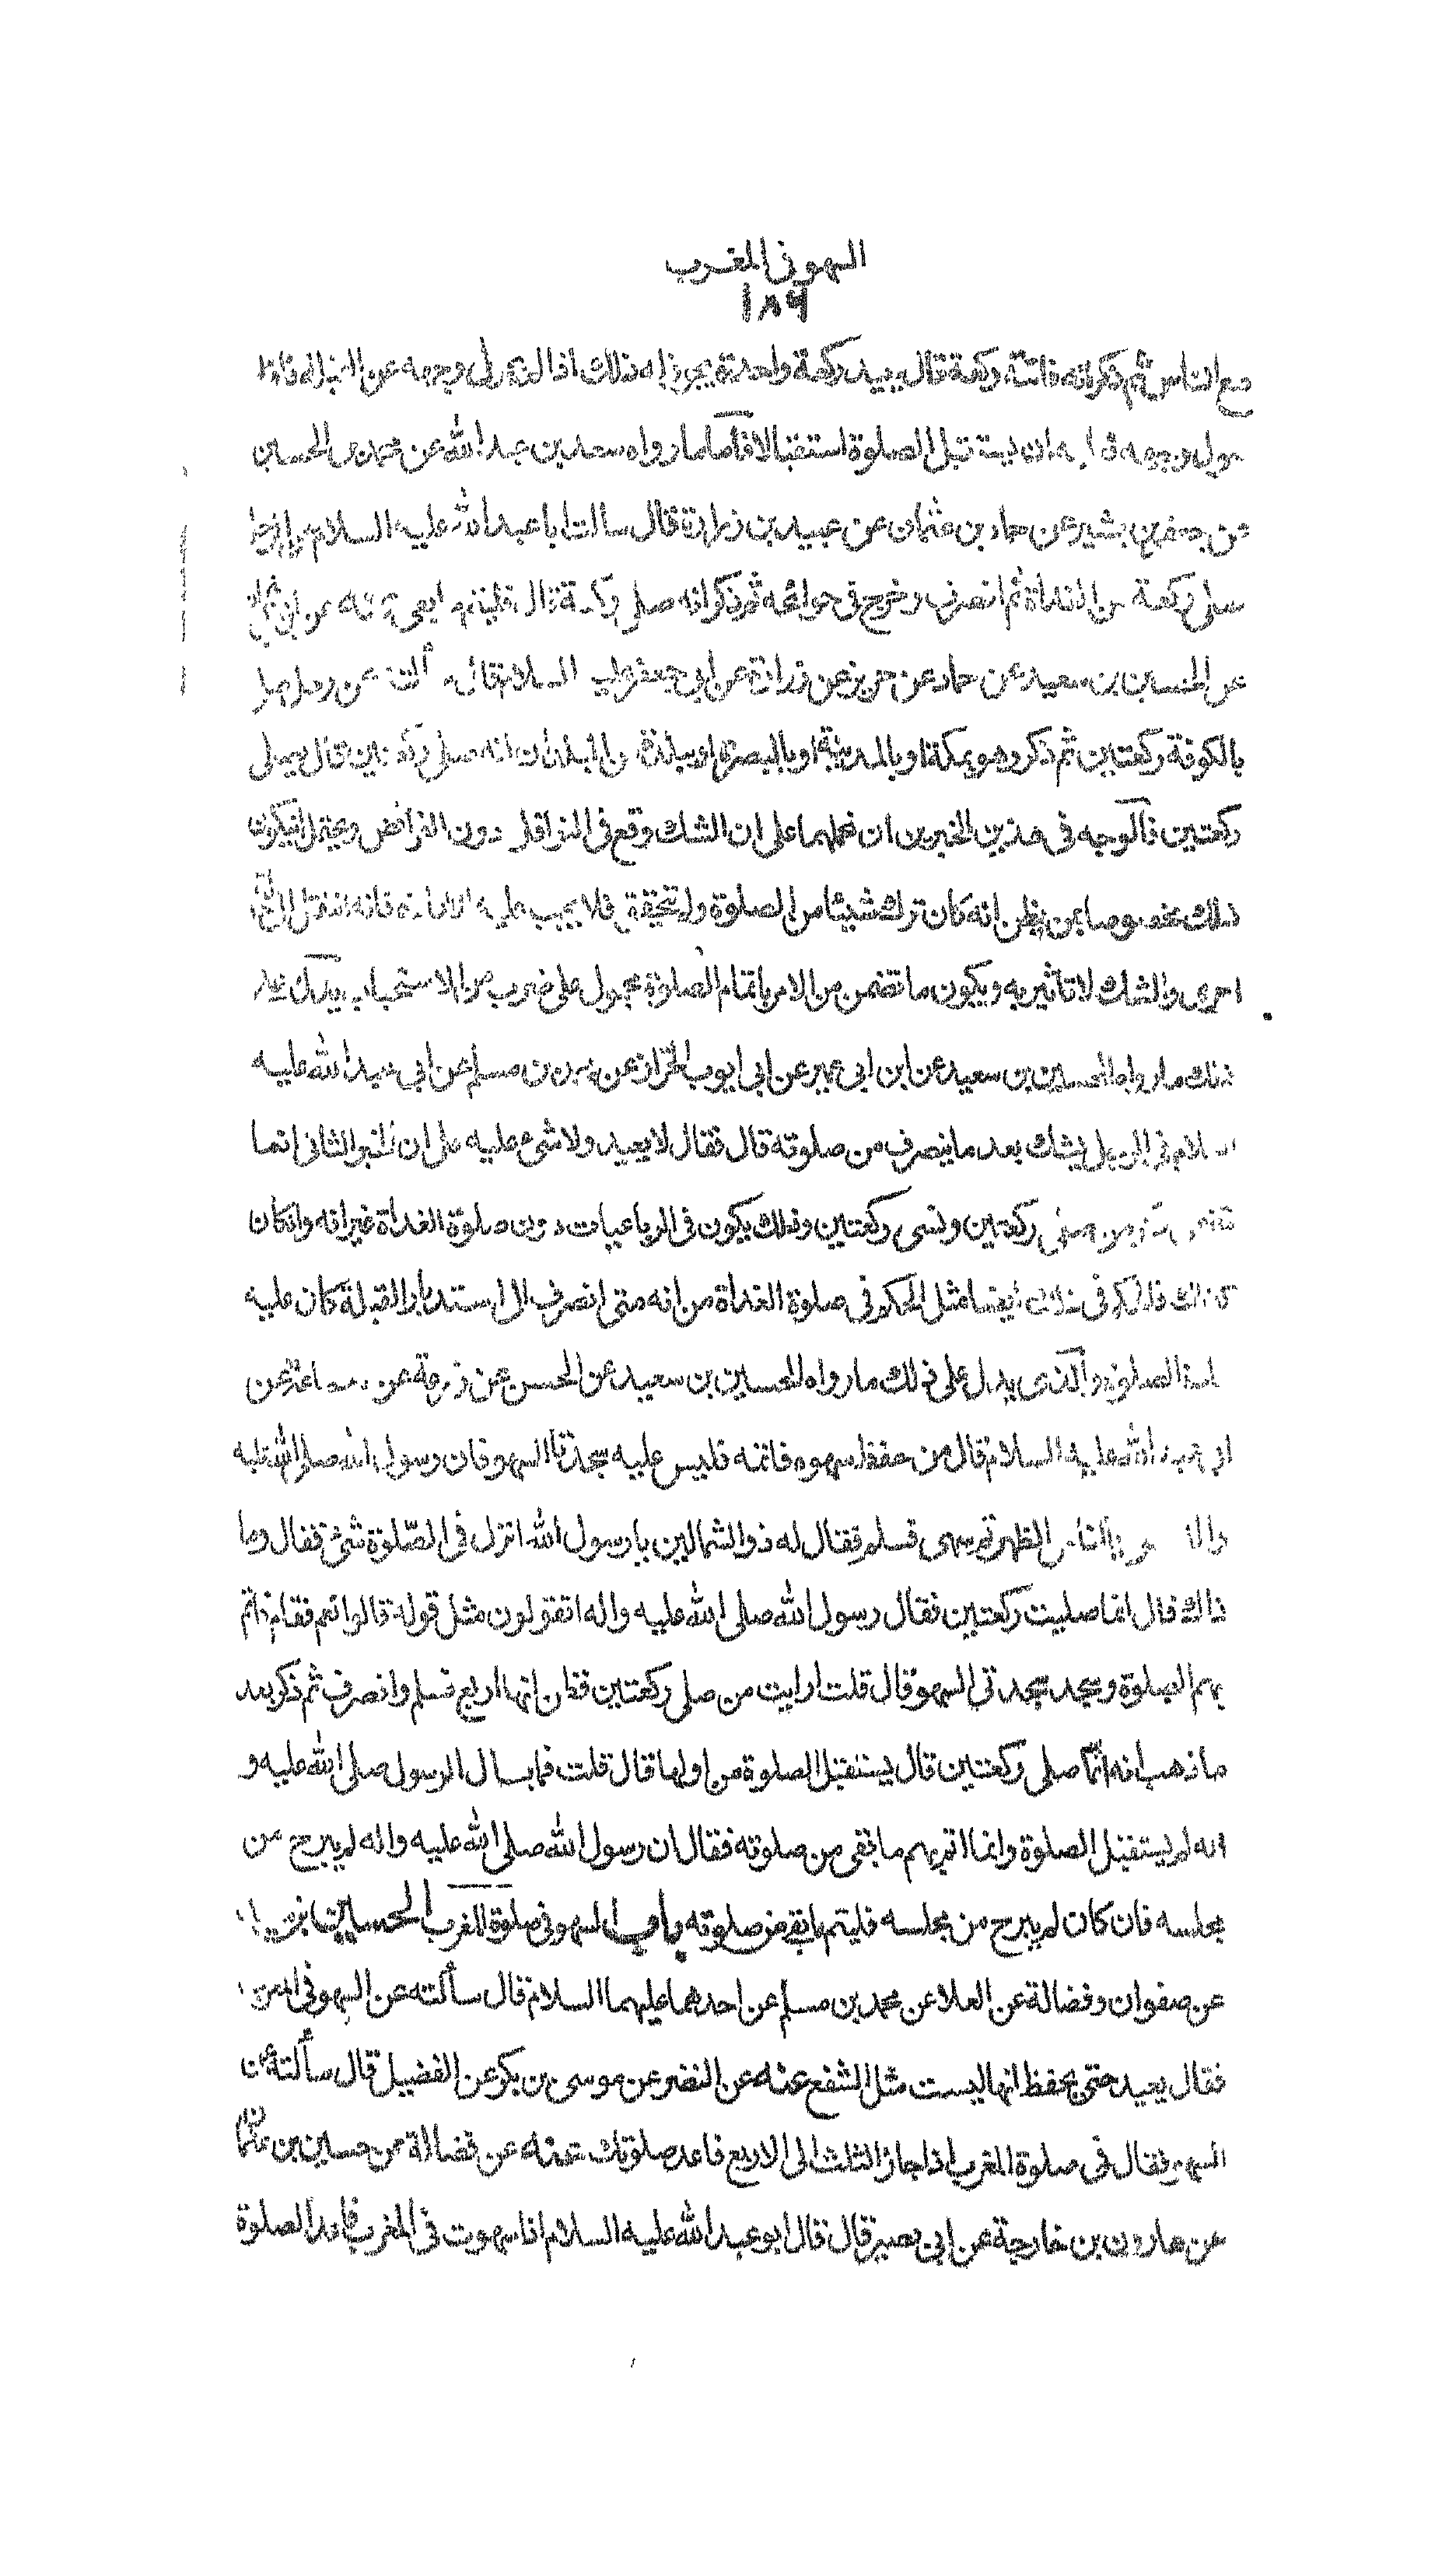 السهو فى المغرب
١٨٩
مع الناس ثم ذكر انه فاتته ركعة قال يعيد ركعة واحدة يجوز له ذلك اذا لم يحول وجهه عن القبلة فاذا
حول وجهه فعليه ان يستقبل الصلوة استقبالا فاما ما رواه سعد بن عبد الله عن محمد بن الحسين
عن جعفر بن بشير عن حماد بن عثمان عن عبيد بن زرارة قال سالت ابا عبد الله عليه السلام عن رجل
صلى ركعة من الغداة ثم انصرف وخرج فى حوائجه ثم ذكر انه صلى ركعة قال فليتم ما بقى عنه عن ابن
عن الحسين بن سعيد عن حماد عن حريز عن زرارة عن ابى جعفر عليه السلام قال سألته عن رجل صلى
بالكوفة ركعتين ثم ذكر وهو بمكة او بالمدينة او بالبصرة او ببلدة من البلدان انه صلى ركعتين قال يصلى
ركعتين فالوجه فى هذين الخبرين ان نحملهما على ان الشك وقع فى النوافل دون الفرائض ويحتمل ان يكون
ذلك مخصوصا بمن يظن انه كان ترك شيئا من الصلوة ولم يتحققه فلا يجب عليه الاعادة فانه انتقل الى
اخرى والشك لا تاثير به ويكون ما تضمن من الامر باتمام الصلوة محمول على ضرب من الاستحباب يدل على
ذلك ما رواه الحسين بن سعيد عن ابن ابى عمير عن ابى ايوب الخزاز عن محمد بن مسلم عن ابى عبد الله عليه
السلام فى الرجل يشك بعد ما ينصرف من صلوته قال فقال لا يعيد ولا شئ عليه على ان الخبر الثانى انما
تضمن من صلى ركعتين ونسى ركعتين وذلك يكون فى الرباعيات دون صلوة الغداة غير انه وان كان
كذلك فالحكم فى ذلك ايضا مثل الحكم فى صلوة الغداة من انه متى انصرف الى استدبار القبلة كان عليه
اعادة الصلوة والذى يدل على ذلك ما رواه الحسين بن سعيد عن الحسن عن زرعة عن سماعة عن
ابى عبد الله عليه السلام قال من حفظ سهوه فاتمه فليس عليه سجدتا السهو فان رسول الله صلى الله عليه
واله صلى بالناس الظهر ثم سهى فسلم فقال له ذو الشمالين يا رسول الله انزل فى الصّلوة شئ فقال وما
ذاك قال انما صليت ركعتين فقال رسول الله صلى الله عليه واله اتقولون مثل قوله قالوا نعم فقام فاتم
بهم الصلوة وسجد سجدتى السهو قال قلت ارايت من صلى ركعتين فظن انها اربع فسلم وانصرف ثم ذكر بعد
ما ذهب انه انما صلى ركعتين قال يستقبل الصلوة من اولها قال قلت فما بال الرسول صلى الله عليه و
اله لم يستقبل الصلوة وانما اتم بهم ما بقى من صلوته فقال ان رسول الله صلى الله عليه واله لم يبرح من
مجلسه فان كان لم يبرح من مجلسه فليتم ما بقى من صلوته باب السهو فى صلوة المغرب الحسين بن
عن صفوان وفضالة عن العلا عن محمد بن مسلم عن احدهما عليهما السلام قال سألته عن السهو فى المغرب
فقال يعيد حتى يحفظ انها ليست مثل الشفع عنه عن النضر عن موسى بن بكر عن الفضيل قال سألته عن
السهو فقال فى صلوة المغرب اذا جاز الثلث الى الاربع فاعد صلوتك عنه عن فضالة عن حسين بن عثمان
عن هارون بن خارجة عن ابى بصير قال قال ابو عبد الله عليه السلام اذا سهوت فى المغرب فاعد الصلوة